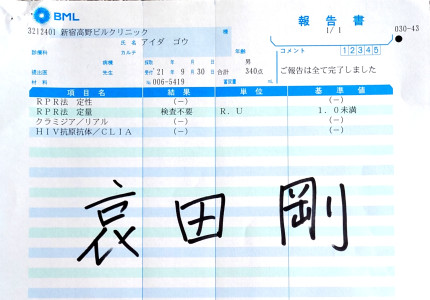 BML
報告書
1/1
030-43
3212401 新宿高野ビルクリニック 様
氏名 アイダ ゴウ
診療科 カルテ 年齢 男 コメント 12345
病棟
提出医 先生 受付 21年9月30日 合計 340点 ご報告は全て完了しました
材料 No. 006-5419
項目名 結果 単位 基準値
RPR法 定性 (−) (−)
RPR法 定量 検査不要 R.U 1.0未満
クラミジア/リアル (−) (−)
HIV抗原抗体/CLIA (−) (−)
哀田剛